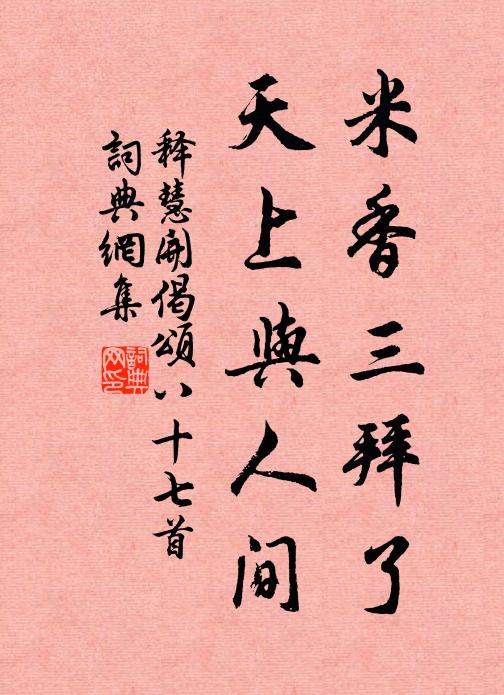 米香三拜了
天上與人间
释慧開偈頌八十七首
詞典網集
詞典網印